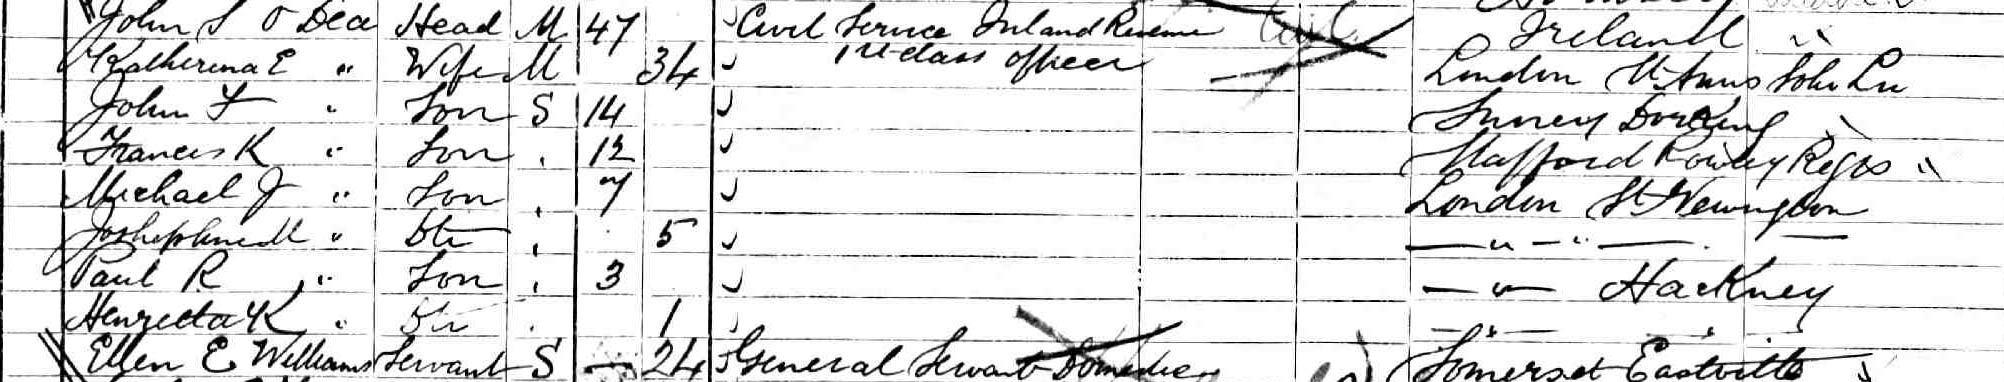 John S O'Dea Head M 47 Civil Service Inland Revenue Ireland "
Katherina E " Wife M 34 1st class officer London St Anns Soho
John F " Son S 14 Surrey Dorking
Francis K " Son " 12 Stafford Rowley Regis "
Michael J " Son " 7 London St Newington
Joshephine M " Dtr " 5 — " — " —
Paul R " Son " 3 — " — Hackney
Henrietta K " Dtr " 1 — " — "
Ellen E Williams Servant S — 24 General Servant Domestic Somerset Eastville "